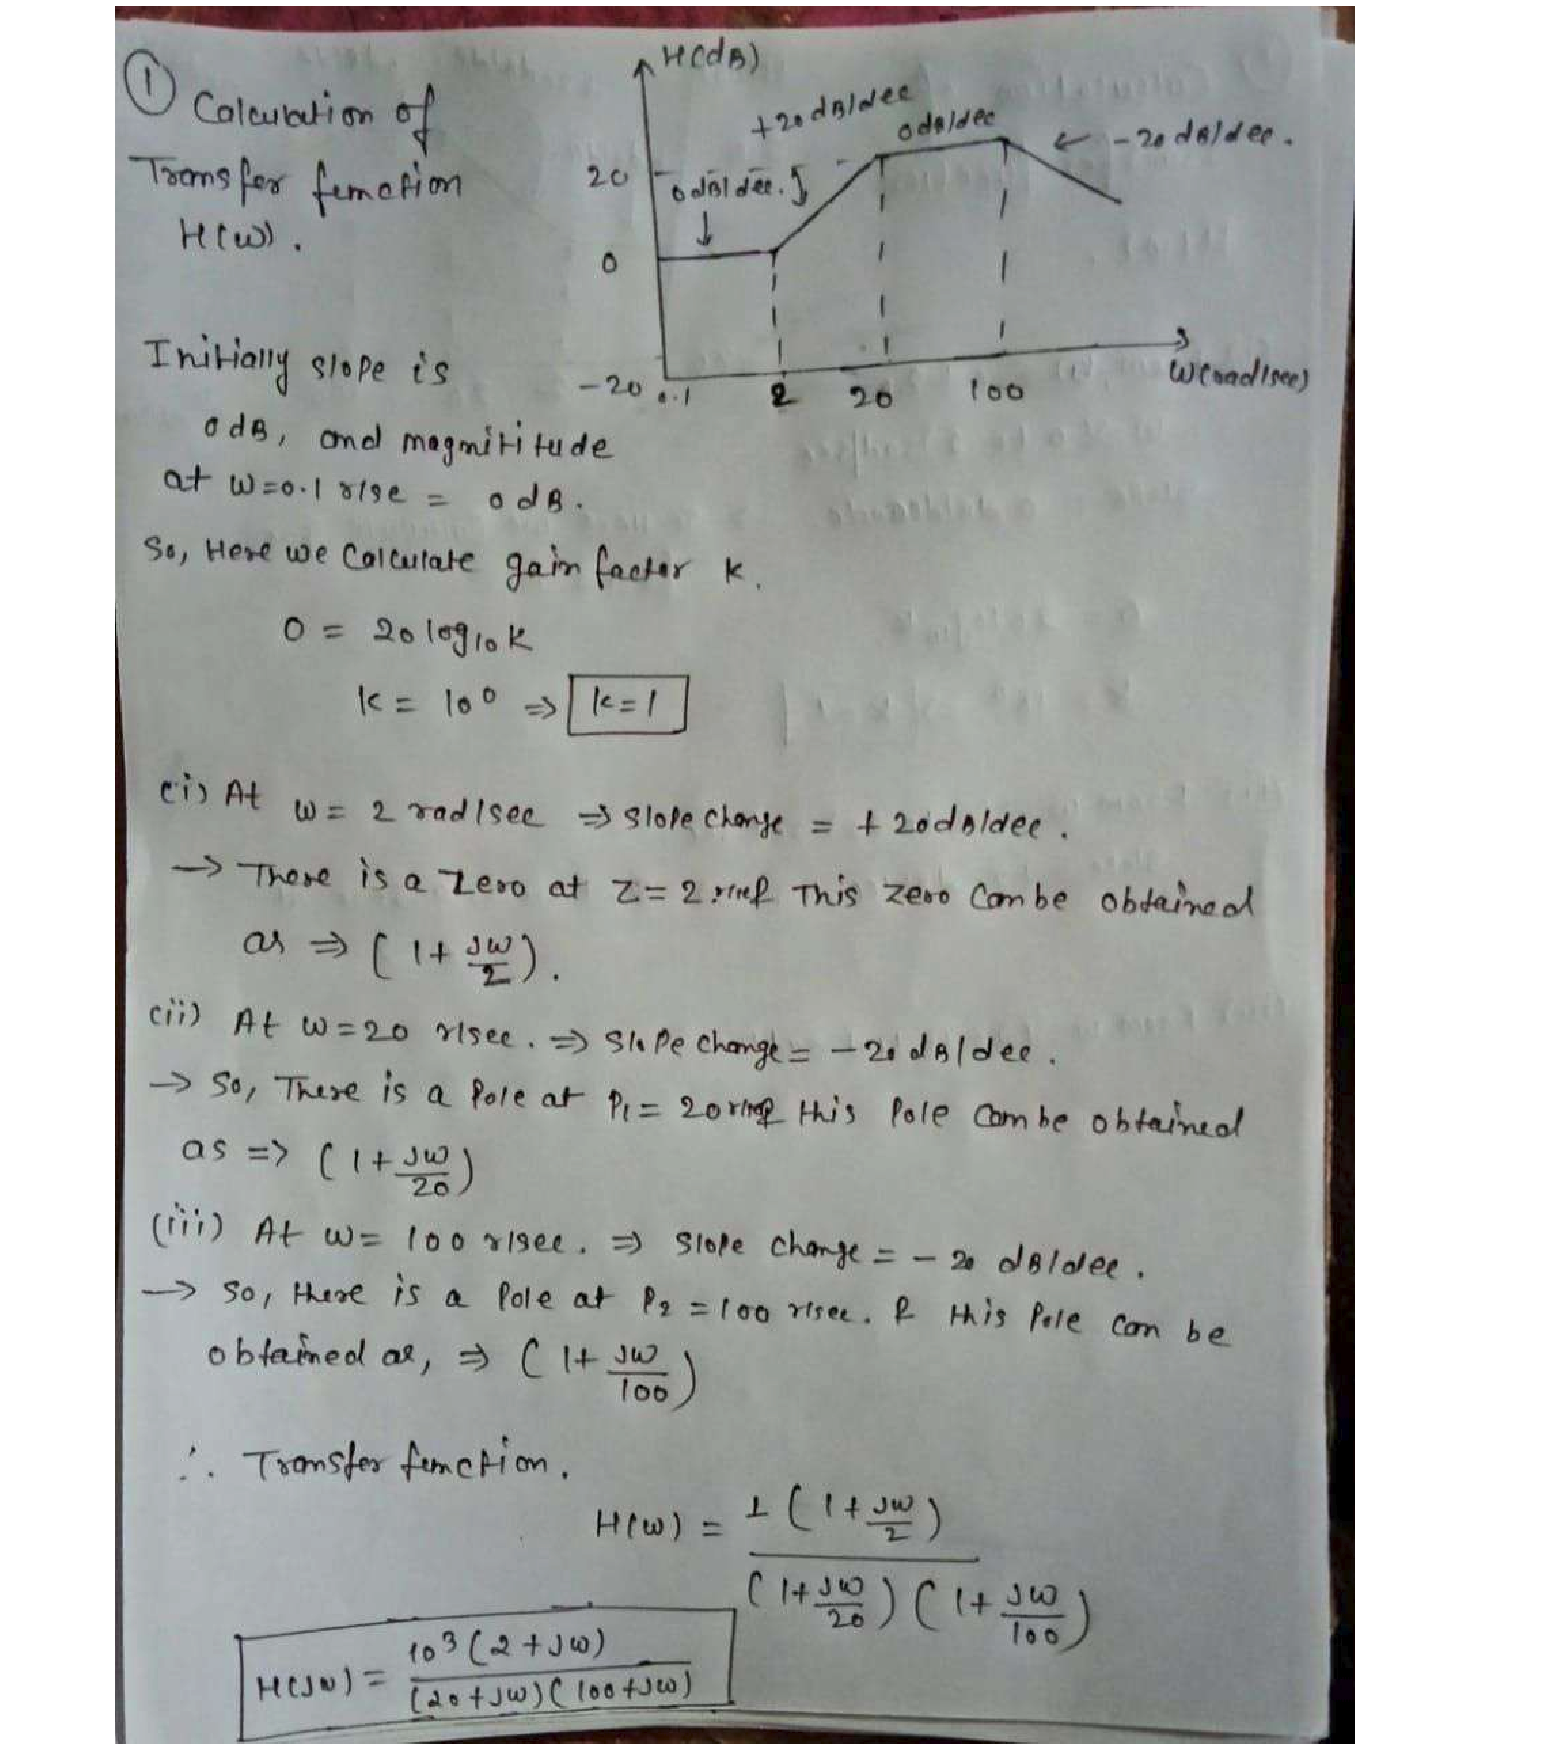 ① Calculation of
Transfer function
H(ω).
H(dB)
+20 dB/dec
0 dB/dec
← -20 dB/dec.
20
0 dB/dec.
↓
0
-20
0.1
2
20
100
ω(rad/sec)
Initially slope is
0 dB, and magnititude
at ω=0.1 r/se = 0 dB.
So, Here we Calculate gain factor K.
0 = 20 log₁₀ K
K = 10⁰ ⇒ K=1
(i) At ω = 2 rad/sec ⇒ Slope change = +20dB/dec.
→ There is a Zero at Z = 2 This zero Can be obtained
as ⇒ (1+ jω/2).
(ii) At ω=20 r/sec. ⇒ Slope change = -20 dB/dec.
→ So, There is a Pole at P₁ = 20 this Pole Can be obtained
as => (1+ jω/20)
(iii) At ω= 100 r/sec. ⇒ Slope change = - 20 dB/dec.
→ So, there is a Pole at P₂ = 100 r/sec. & this Pole can be
obtained as, ⇒ (1+ jω/100)
∴ Transfer function.
H(ω) = 1 (1+ jω/2) / (1+ jω/20) (1+ jω/100)
H(jω) = 10³ (2+jω) / (20+jω)(100+jω)